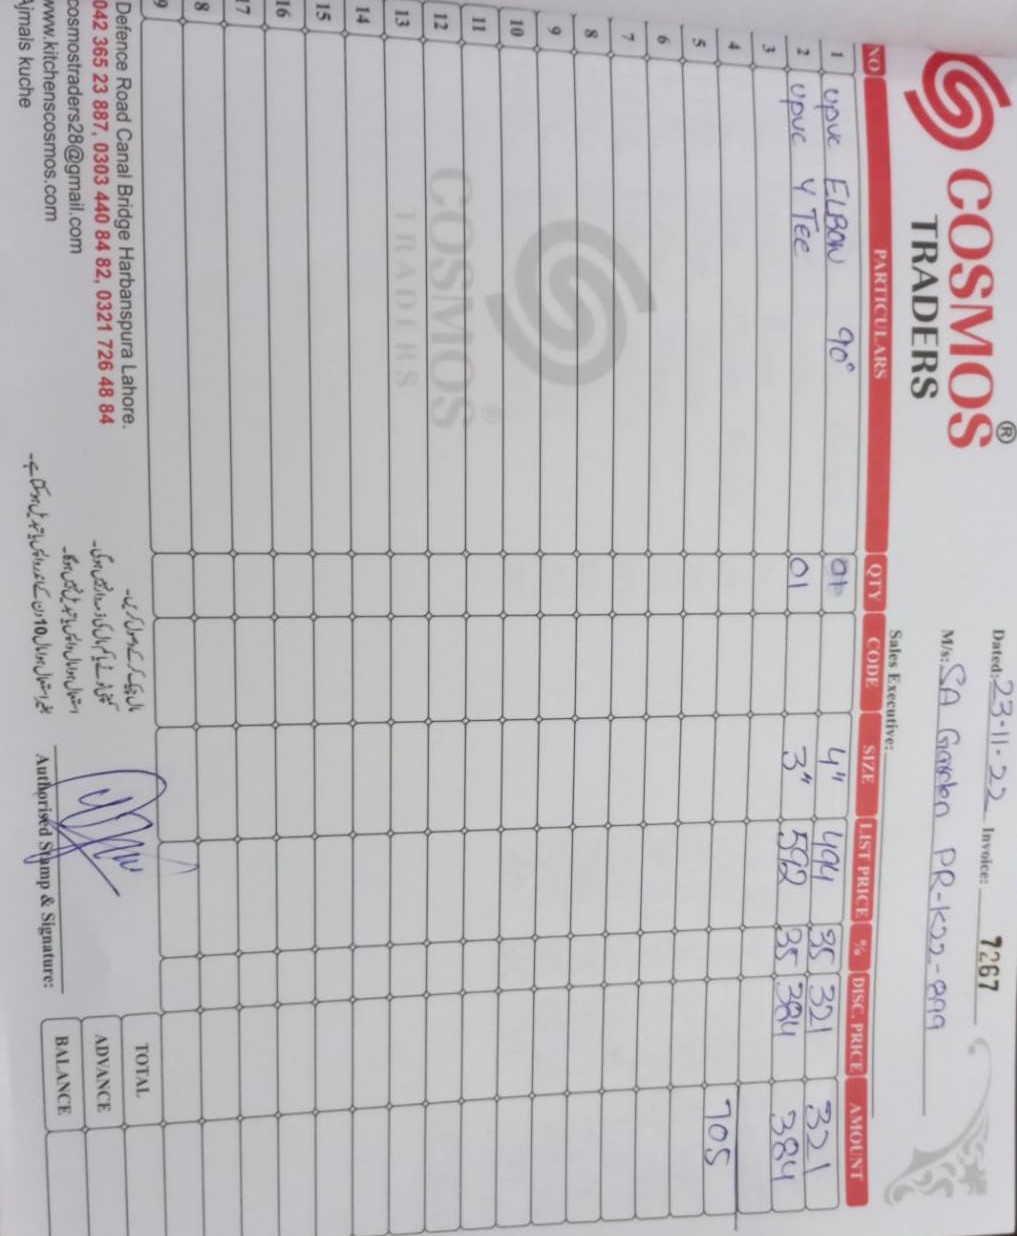 COSMOS ®
TRADERS
Dated: 23-11-22 Invoice: 7267
M/s: SA Garden PR-K22-899
Sales Executive:
NO PARTICULARS QTY CODE SIZE LIST PRICE % DISC. PRICE AMOUNT
1 upvc ELBOW 90° 01 4" 494 35 321 321
2 upvc Y Tee 01 3" 592 35 384 384
3
4 705
5
6
7
8
9
10
11
12
13
14
15
16
17
8
9
COSMOS ®
TRADERS
Defence Road Canal Bridge Harbanspura Lahore.
042 365 23 887, 0303 440 84 82, 0321 726 48 84
cosmostraders28@gmail.com
www.kitchenscosmos.com
Ajmals kuche
مال چیک کر کے وصول کریں۔
کمپنی ٹوٹے یا کم مال کی ذمہ دار نہیں ہوگی۔
استعمال ہوا مال واپس یا تبدیل نہیں ہوگا۔
بغیر استعمال ہوا مال 10 دن کے اندر واپس یا تبدیل ہوسکتا ہے۔
Authorised Stamp & Signature:
TOTAL
ADVANCE
BALANCE